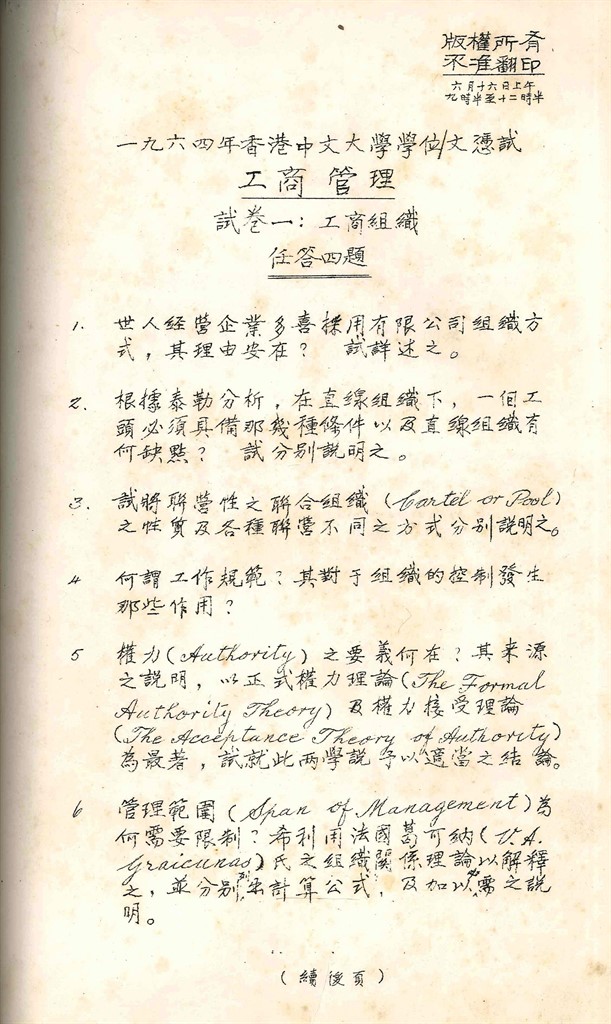 版權所有
不准翻印
六月十六日上午
九時半至十二時半
一九六四年香港中文大學學位/文憑試
工商管理
試卷一：工商組織
任答四題
1. 世人經營企業多喜採用有限公司組織方
式，其理由安在？ 試詳述之。
2. 根據泰勒分析，在直線組織下，一個工
頭必須具備那幾種條件以及直線組織有
何缺點？ 試分别說明之。
3. 試將聯營性之聯合組織 (Cartel or Pool)
之性質及各種聯營不同之方式分别說明之。
4 何謂工作規範？其對于組織的控制發生
那些作用？
5 權力(Authority) 之要義何在？其来源
之說明，以正式權力理論(The Formal
Authority Theory) 及權力接受理論
(The Acceptance Theory of Authority)
為最著，試就此两學說予以適當之結論。
6 管理範圍 (Span of Management)為
何需要限制？希利用法國葛可納 (V. A.
Graicunas) 氏之組織關係理論以解釋
之，並分别列出計算公式，及加以必需之說
明。
(續後頁)